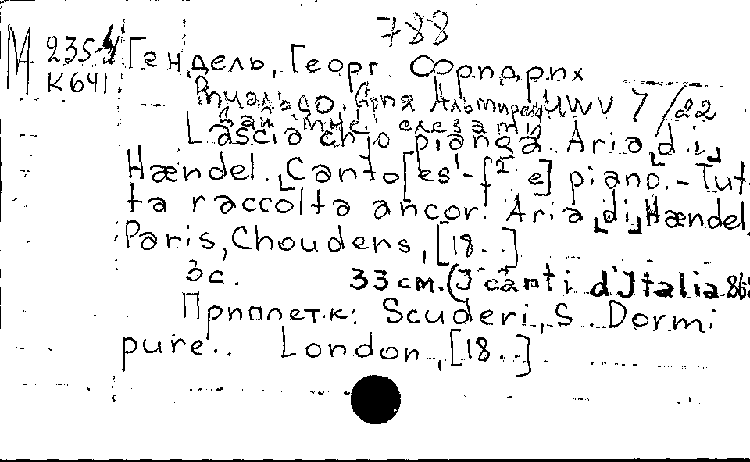 788
М 235
К 641
Гендель, Георг Фридрих
Ринальдо. Ария Альмирены HWV 7/22
Дай мне слезами
Lascia chio pianga. Aria [di]
Hændel. [Canto[es¹-f² e] piano. - Tut-
ta raccolta ancor. Aria [di] Hændel,
Paris, Choudens, [18..]
3с. 33 см. (I canti d'Italia 868
Приплет.к: Scuderi, S. Dormi
pure.. London, [18..]